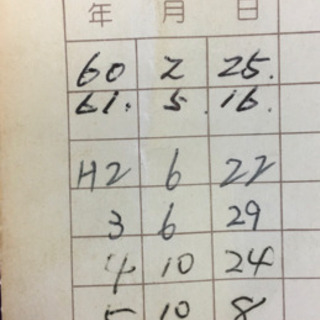 年 月 日
60 2 25.
61. 5 16.
H2 6 22
3 6 29
4 10 24
5 10 8